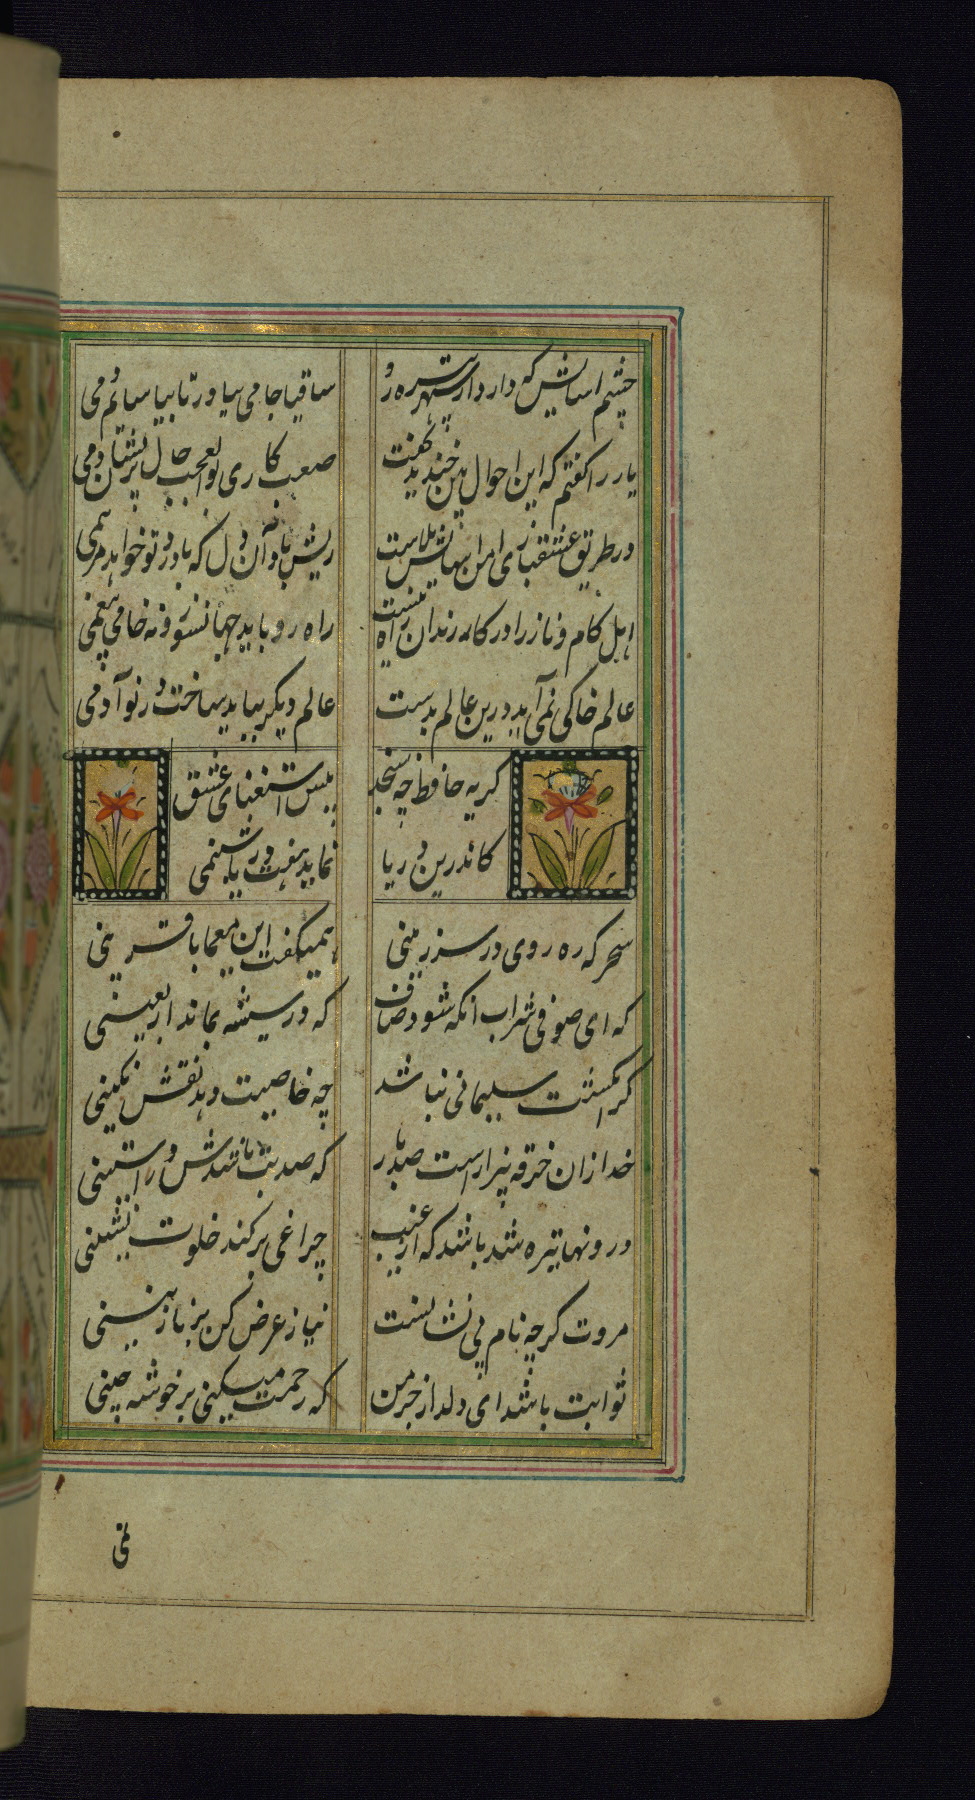 چشم اسایش که دارد از سپهر تیزرو ساقیا جامی بیاور تا بیاسایم دمی
یار را گفتم که این احوال بین خندید گفت صعب کاری بوالعجب حالی پریشان عالمی
در طریق عشقبازی امن اسایش بلاست ریش باد آن دل که با درد تو خواهد مرهمی
اهل کام و ناز را در کار رندان راه نیست راه روی باید جهانسوزی نه خامی بیغمی
عالم خاکی نمی آید درین عالم بدست عالم دیگر بباید ساخت وز نو آدمی
کریه حافظ چه سنجد پیش استغنای عشق
کاندرین دریا نماید هفت دریا شبنمی
سحر که ره روی در سرزمینی همیگفت این معما با قرینی
که ای صوفی شراب انکه شود صاف که در شیشه بماند اربعینی
کر انکشت سلیمانی نباشد چه خاصیت دهد نقش نکینی
خدا زان خرقه بیزار است صد بار که صد بت باشدش در استینی
درونها تیره شد باشد که از غیب چراغی بر کند خلوت نشینی
مروت کرچه نام بی نشانست نیاز عرض کن بر نازنینی
ثوابت باشد ای دلدار خرمن که رحمت میکنی بر خوشه چینی